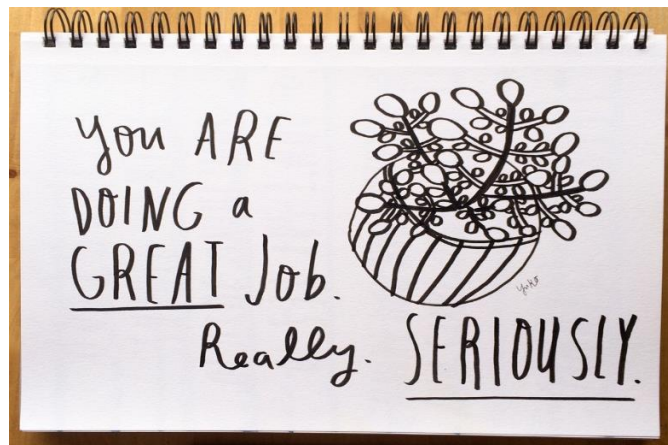 You ARE
DOING a
GREAT Job.
Really. SERIOUSLY.